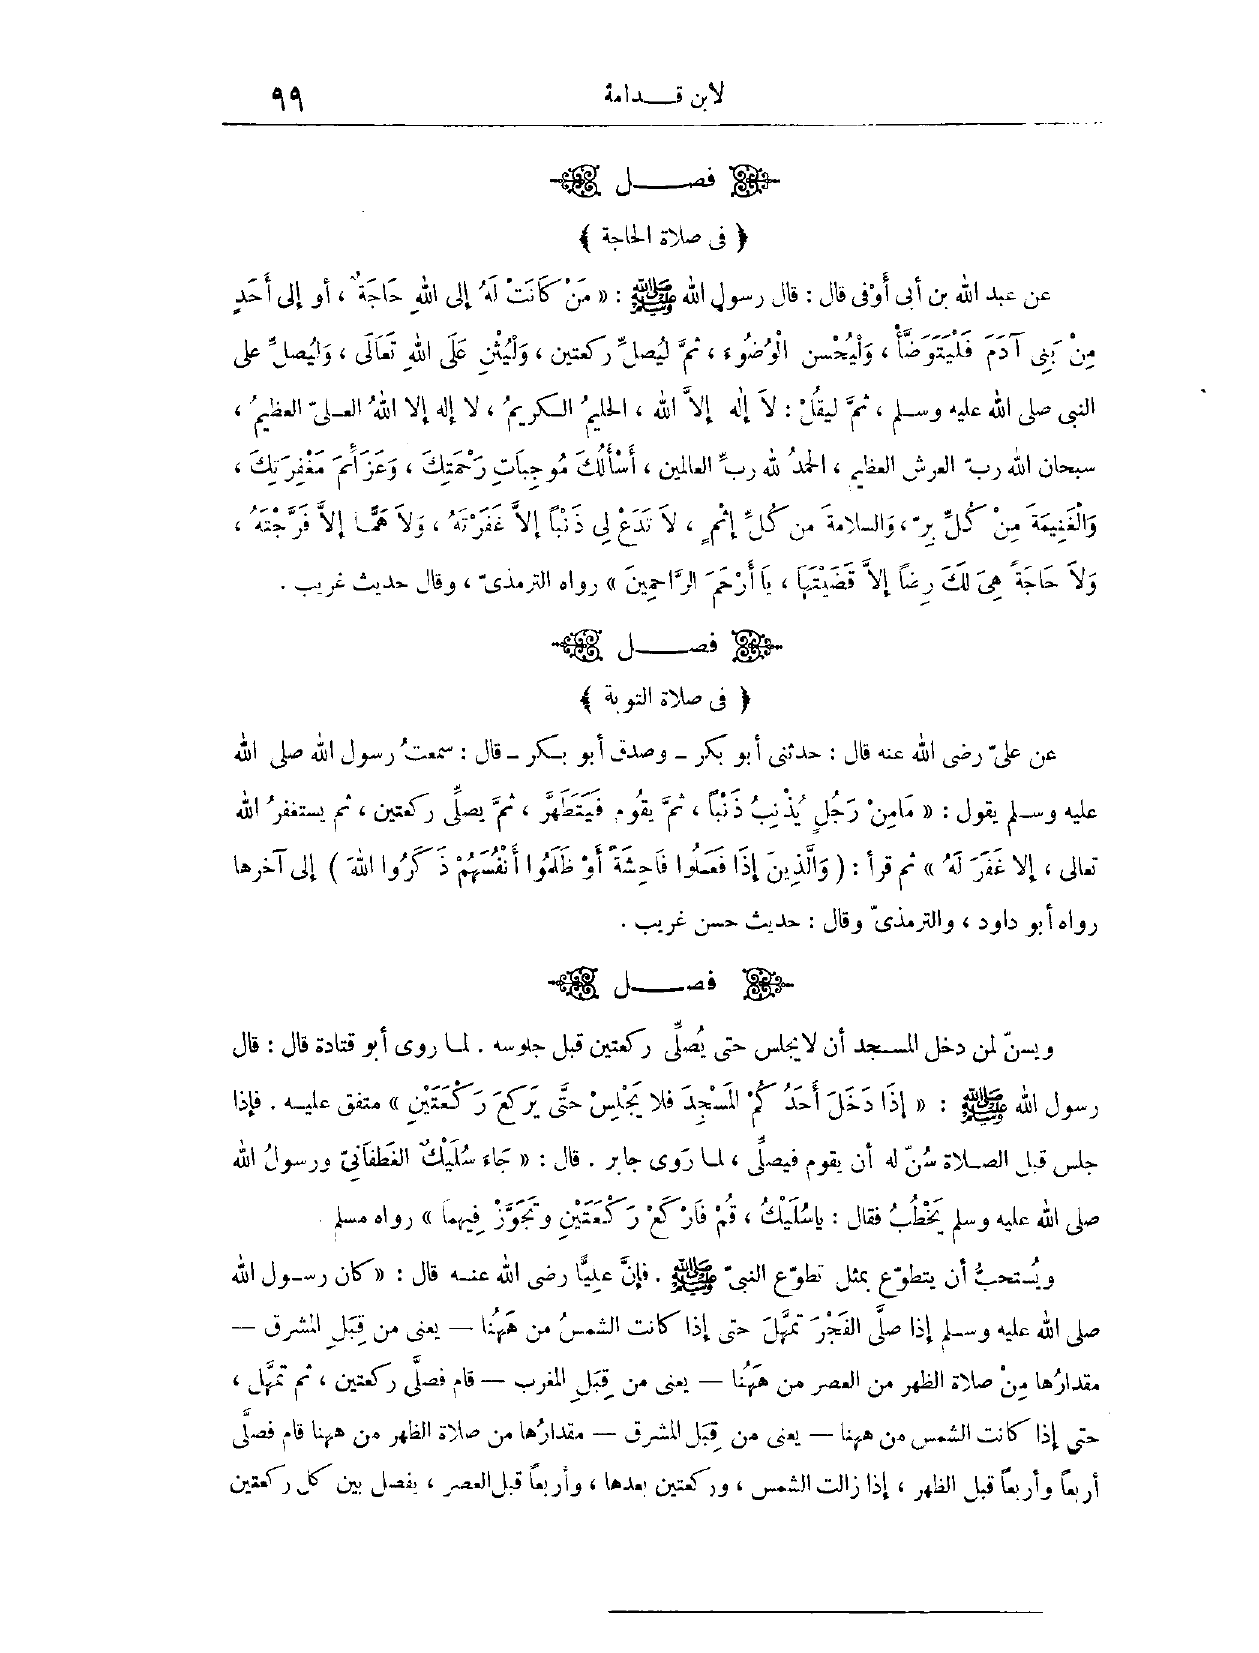 لابن قـدامة ٩٩
فصـــل
﴿ فى صلاة الحاجة ﴾
عن عبد الله بن أبى أَوْفى قال : قال رسول الله ﷺ : « مَنْ كَانَتْ لَهُ إلى اللهِ حَاجَةٌ ، أو إلى أَحَدٍ
مِنْ بَنِى آدَمَ فَلْيَتَوَضَّأْ ، وَلْيُحْسن الْوُضُوء ، ثمَّ لْيُصلِّ ركعتين ، وَلْيُثْنِ عَلَى اللهِ تَعَالَى ، وَلْيُصلِّ على
النبى صلى الله عليه وسـلم ، ثمَّ ليقُلْ : لاَ إِلٰه إلاَّ الله ، الحليمُ الـكريمُ ، لا إله إلا اللهُ العـلىّ العظيمُ ،
سبحان الله ربّ العرش العظيم ، الحمدُ لله ربِّ العالمين ، أَسْأَلُكَ مُوجِبَاتِ رَحْمَتِكَ ، وَعَزَائِمَ مَغْفِرَتِكَ ،
وَالْغَنِيمَةَ مِنْ كُلِّ بِرّ ، وَالسلامةَ من كُلِّ إِثْمٍ ، لاَ تَدَعْ لِى ذَنْبًا إلاَّ غَفَرْتَهُ ، وَلاَ هَمًّا إلاَّ فَرَّجْتَهُ ،
وَلاَ حَاجَةً هِىَ لَكَ رِضًا إلاَّ قَضَيْتَهَا ، يَا أَرْحَمَ الرَّاحِمِينَ » رواه الترمذىّ ، وقال حديث غريب .
فصـــل
﴿ فى صلاة التوبة ﴾
عن علىّ رضى الله عنه قال : حدثنى أبو بكر ـ وصدق أبو بـكر ـ قال : سمعتُ رسول الله صلى الله
عليه وسـلم يقول : « مَامِنْ رَجُلٍ يُذْنِبُ ذَنْبًا ، ثمَّ يقُوم فَيَتَطَهَّر ، ثمَّ يصلِّى ركعتين ، ثم يستغفرُ الله
تعالى ، إلا غَفَرَ لَهُ » ثم قرأ : ( وَالَّذِينَ إِذَا فَعَلُوا فَاحِشَةً أَوْ ظَلَمُوا أَنْفُسَهُمْ ذَكَرُوا اللهَ ) إلى آخرها
رواه أبو داود ، والترمذىّ وقال : حديث حسن غريب .
فصـــل
ويسنّ لمن دخل المسـجد أن لا يجلس حتى يُصلِّى ركعتين قبل جلوسه . لمـا روى أبو قتادة قال : قال
رسول الله ﷺ : « إِذَا دَخَلَ أَحَدُكُمْ المَسْجِدَ فلا يَجْلِسْ حتَّى يَركعَ رَكْعَتَيْنِ » متفق عليـه . فإذا
جلس قبل الصـلاة سُنّ له أن يقوم فيصلِّى ، لمـا رَوى جابر . قال : « جَاءَ سُلَيْكٌ الغَطفَانِىّ ورسولُ الله
صلى الله عليه وسلم يَخْطُبُ فقال : ياسُلَيْكُ ، قُمْ فَارْكَعْ رَكْعَتَيْنِ وتَجَوَّزْ فِيهِمَا » رواه مسلم .
ويُستحبُّ أن يتطوّع بمثل تطوّع النبىّ ﷺ . فإنَّ عليًّا رضى الله عنـه قال : « كان رسـول الله
صلى الله عليه وسـلم إذا صلَّى الفَجْرَ تمهَّلَ حتى إذا كانت الشمسُ من هَهُنا — يعنى من قِبَلِ المشرق —
مقدارُها مِنْ صلاة الظهر من العصر من هَهُنا — يعنى من قِبَلِ المغرب — قام فصلَّى ركعتين ، ثم تمهَّل ،
حتى إذا كانت الشمس من ههنا — يعنى من قِبَل المشرق — مقدارُها من صلاة الظهر من ههنا قام فصلَّى
أربعاً وأربعاً قبل الظهر ، إذا زالت الشمس ، وركعتين بعدها ، وأربعاً قبل العصر ، يفصل بين كل ركعتين